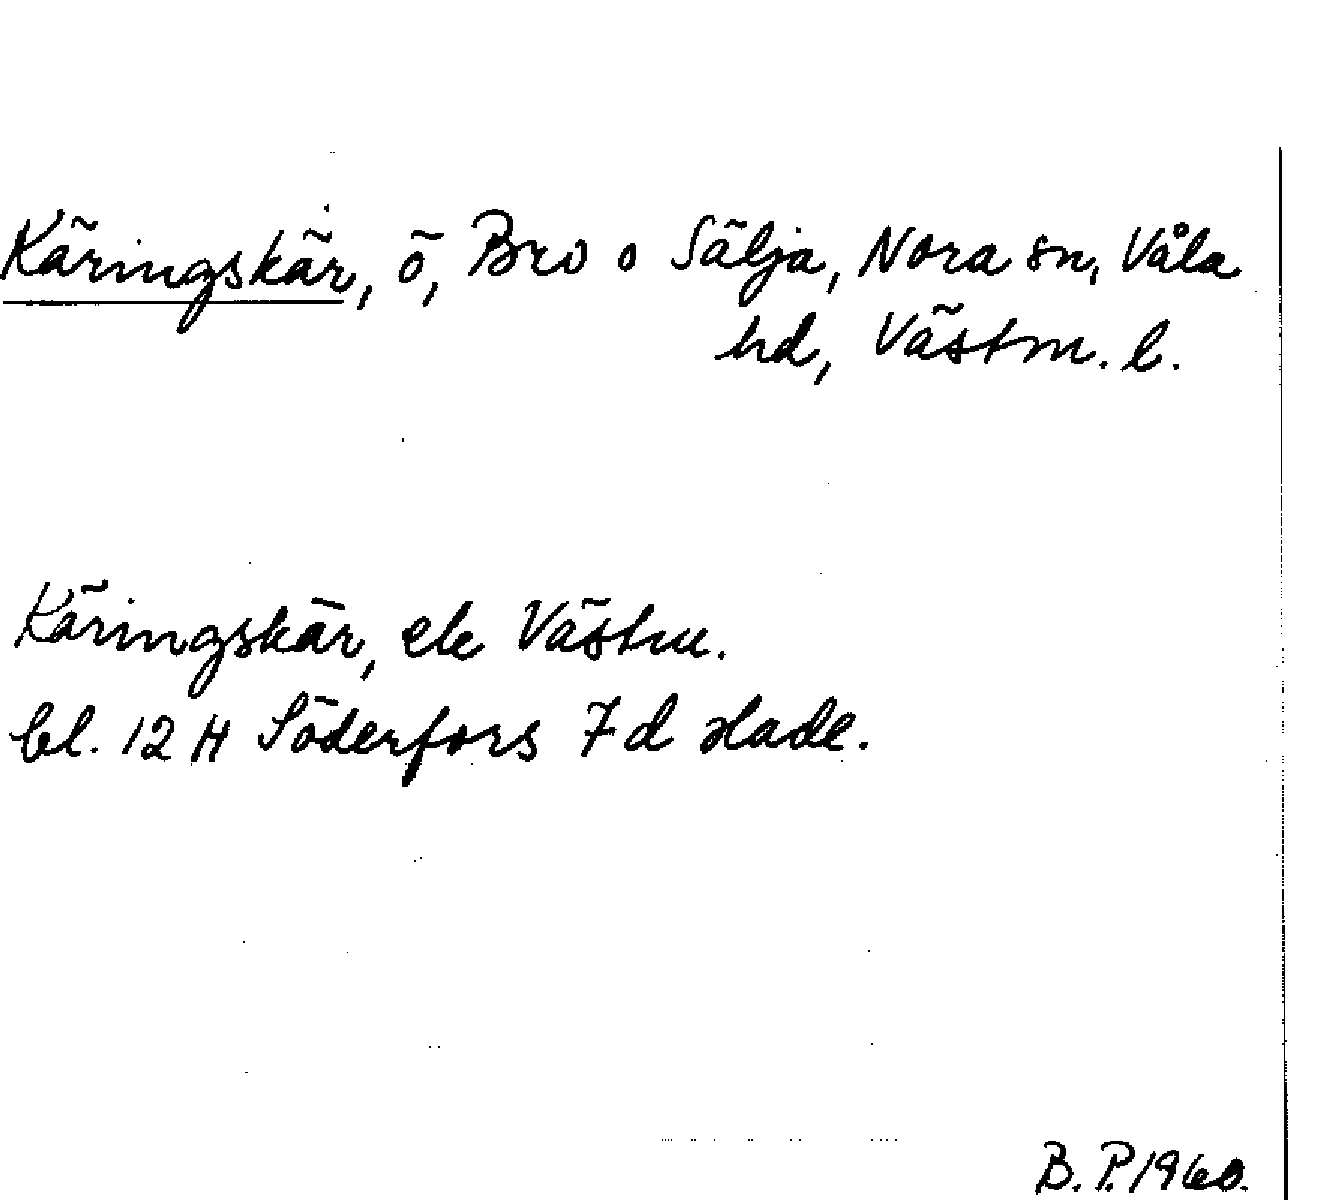 Käringskär, ö, Bro o Sälja, Nora sn, Våla
hd, Västm. l.
Käringskär, ek Västm.
bl. 12 H Söderfors 7d Hade.
B. P. 1960.